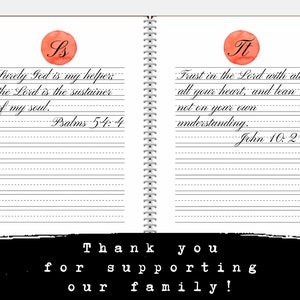 Ss
Surely God is my helper;
the Lord is the sustainer
of my soul.
Psalms 54:4
Tt
Trust in the Lord with
all your heart, and lean
not on your own
understanding.
John 10:2
Thank you
for supporting
our family!